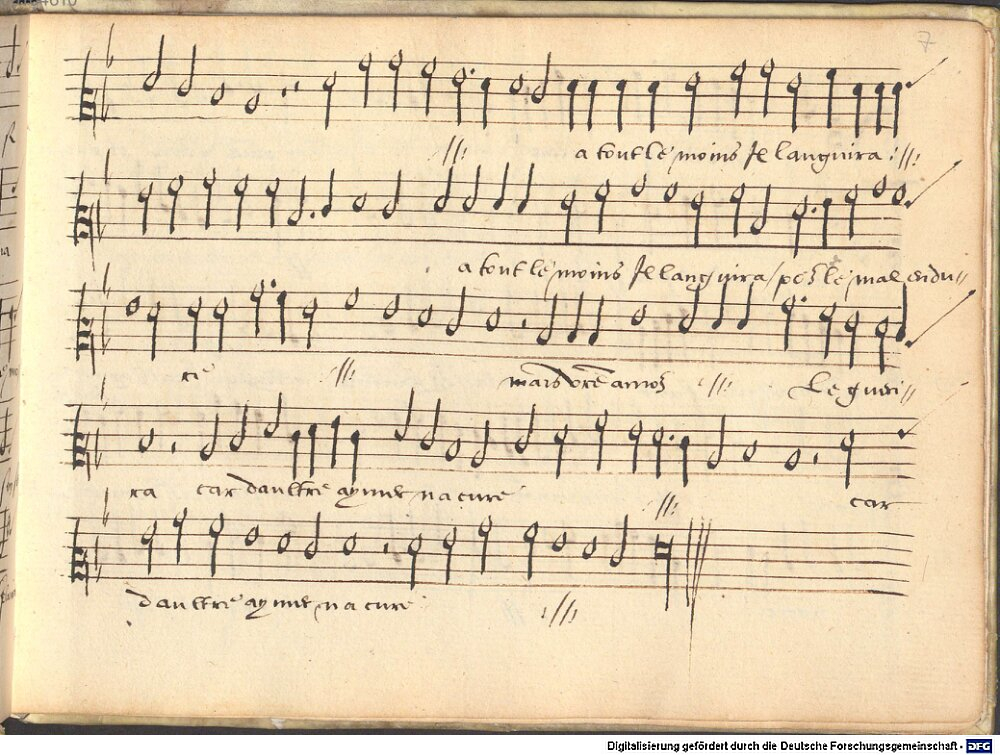 7
a tout le moins Je languira :||:
a tout le moins Je languira / por le mal endu-
re :||: mais vre amor :||: Le gueri-
ra car daultre ayme na cure :||: car
daultre ayme na cure :||:
Digitalisierung gefördert durch die Deutsche Forschungsgemeinschaft - DFG